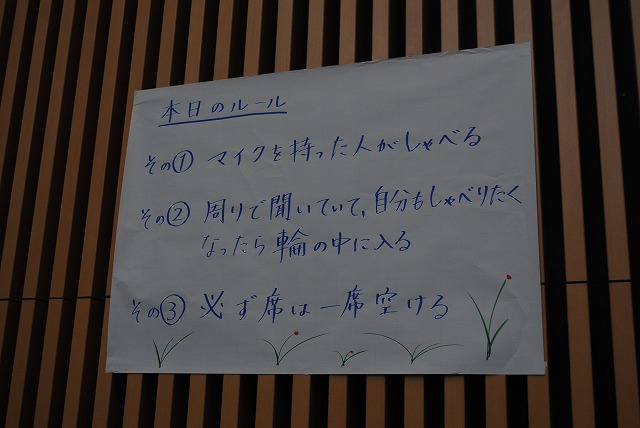 本日のルール
その① マイクを持った人がしゃべる
その② 周りで聞いていて、自分もしゃべりたく
なったら輪の中に入る
その③ 必ず席は一席空ける